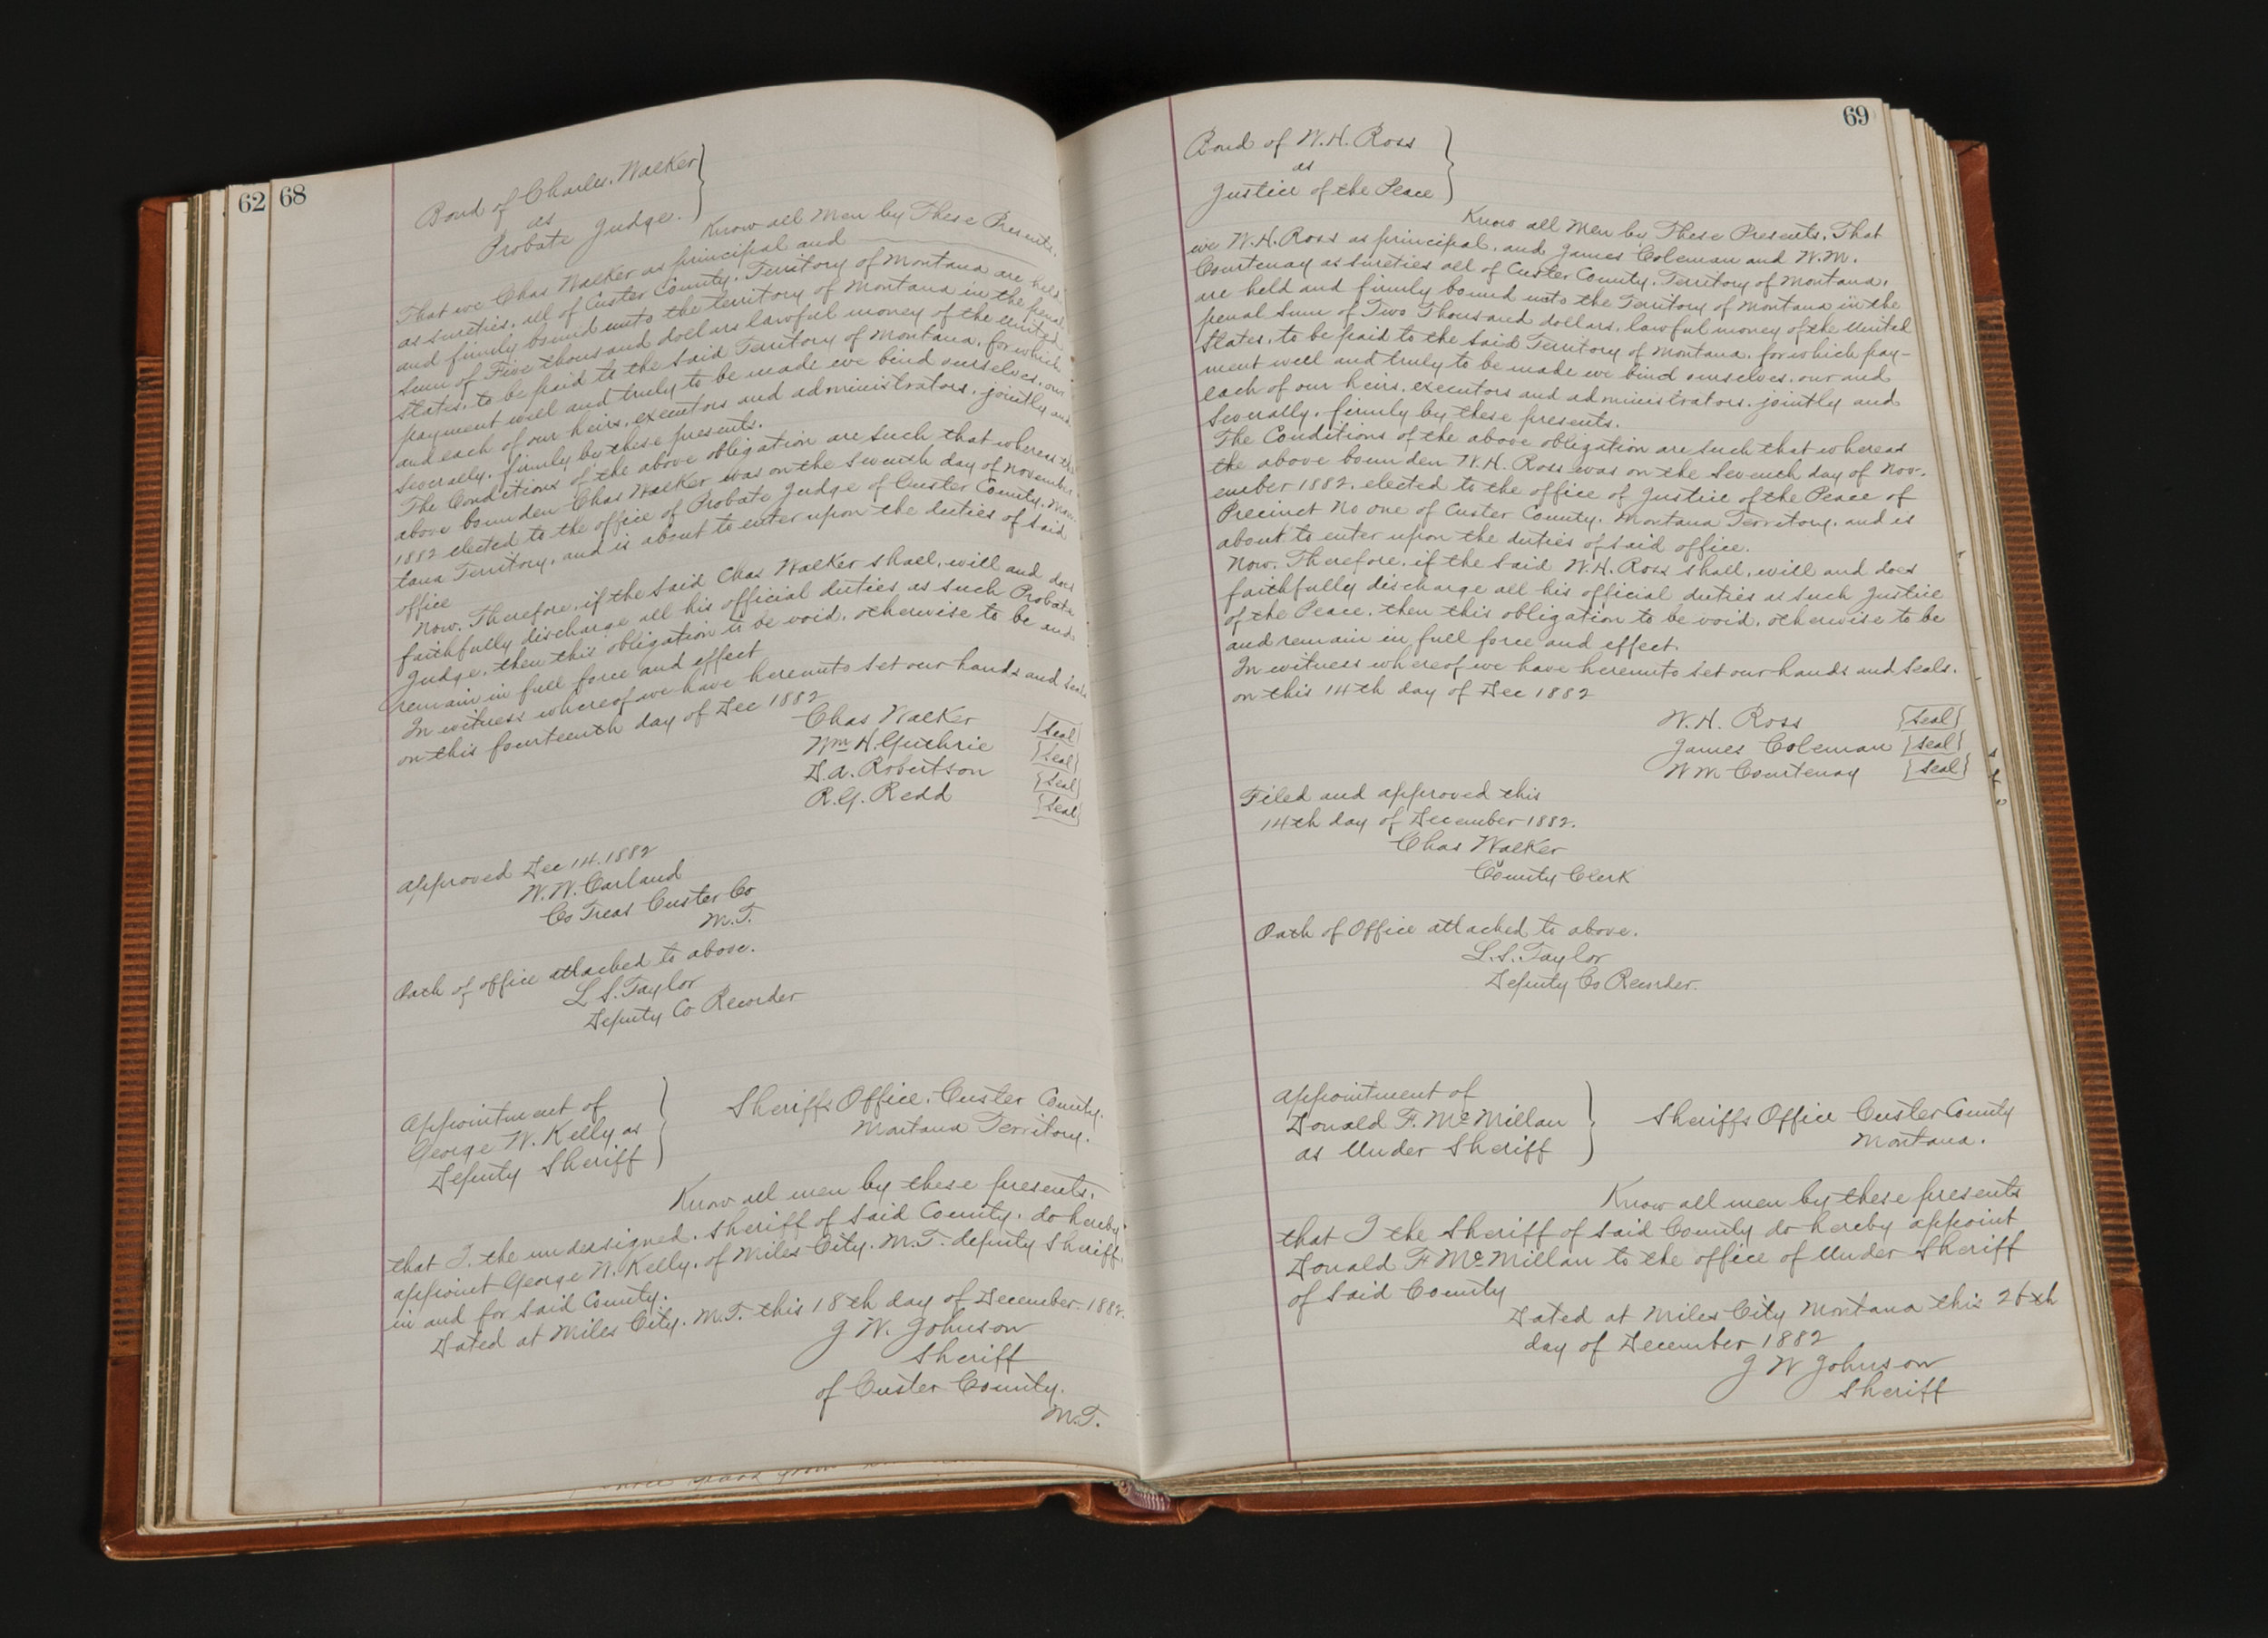 62 68
Bond of Charles. Walker
as
Probate Judge.
Know all Men by These Presents.
That we Chas Walker as principal and
as sureties, all of Custer County. Territory of Montana are held
and firmly bound unto the territory of Montana in the penal
Sum of Five thousand dollars lawful money of the United
States. to be paid to the said Territory of Montana. for which
payment well and truly to be made we bind ourselves. our
and each of our heirs, executors and administrators. jointly and
Severally. firmly by these presents.
The Conditions of the above obligation are such that whereas the
above bounden Chas Walker was on the Seventh day of November
1882 elected to the office of Probate Judge of Custer County. Mon
tana Territory. and is about to enter upon the duties of said
office
Now. Therefore. if the said Chas Walker shall, will and does
faithfully discharge all his official duties as such Probate
Judge. then this obligation to be void. otherwise to be and
remain in full force and effect
In witness whereof we have hereunto set our hands and seals
on this fourteenth day of Dec 1882
Chas Walker {Seal}
Wm H. Guthrie {Seal}
D. A. Robertson {Seal}
R. G. Redd {Seal}
Approved Dec 14. 1882
W. W. Carland
Co Treas Custer Co
M.T.
Oath of office attached to above.
L S. Taylor
Deputy Co Recorder
Appointment of
George W. Kelly as
Deputy Sheriff
Sheriffs Office. Custer County.
Montana Territory.
Know all men by these presents.
that I. the undersigned. Sheriff of said County. do hereby
appoint George W. Kelly. of Miles City. M.T. deputy Sheriff.
in and for said County.
Dated at Miles City. M.T. this 18th day of December. 1882.
J W. Johnson
Sheriff
of Custer County.
M.T.
69
Bond of W. H. Ross
as
Justice of the Peace
Know all Men by These Presents. That
we W. H. Ross as principal. and James Coleman and W.M.
Courtenay as sureties all of Custer County. Territory of Montana.
are held and firmly bound unto the Territory of Montana in the
penal Sum of Two Thousand dollars. lawful money of the United
States. to be paid to the said Territory of Montana. for which pay-
ment well and truly to be made we bind ourselves. our and
each of our heirs. executors and administrators. jointly and
Severally. firmly by these presents.
The Conditions of the above obligation are such that whereas
the above bounden W. H. Ross was on the Seventh day of Nov-
ember 1882. elected to the office of Justice of the Peace of
Precinct No one of Custer County. Montana Territory. and is
about to enter upon the duties of said office.
Now. Therefore. if the said W. H. Ross shall. will and does
faithfully discharge all his official duties as such Justice
of the Peace. then this obligation to be void. otherwise to be
and remain in full force and effect.
In witness whereof we have hereunto set our hands and Seals.
on this 14th day of Dec 1882
W. H. Ross {Seal}
James Coleman {Seal}
W M Courtenay {Seal}
Filed and approved this
14th day of December 1882.
Chas Walker
County Clerk
Oath of Office attached to above.
L. S. Taylor
Deputy Co Recorder.
Appointment of
Donald F. McMillan
as Under Sheriff
Sheriffs Office Custer County
Montana.
Know all men by these presents
that I the Sheriff of said County do hereby appoint
Donald F McMillan to the office of Under Sheriff
of Said County
Dated at Miles City Montana this 26th
day of December 1882
J W Johnson
Sheriff